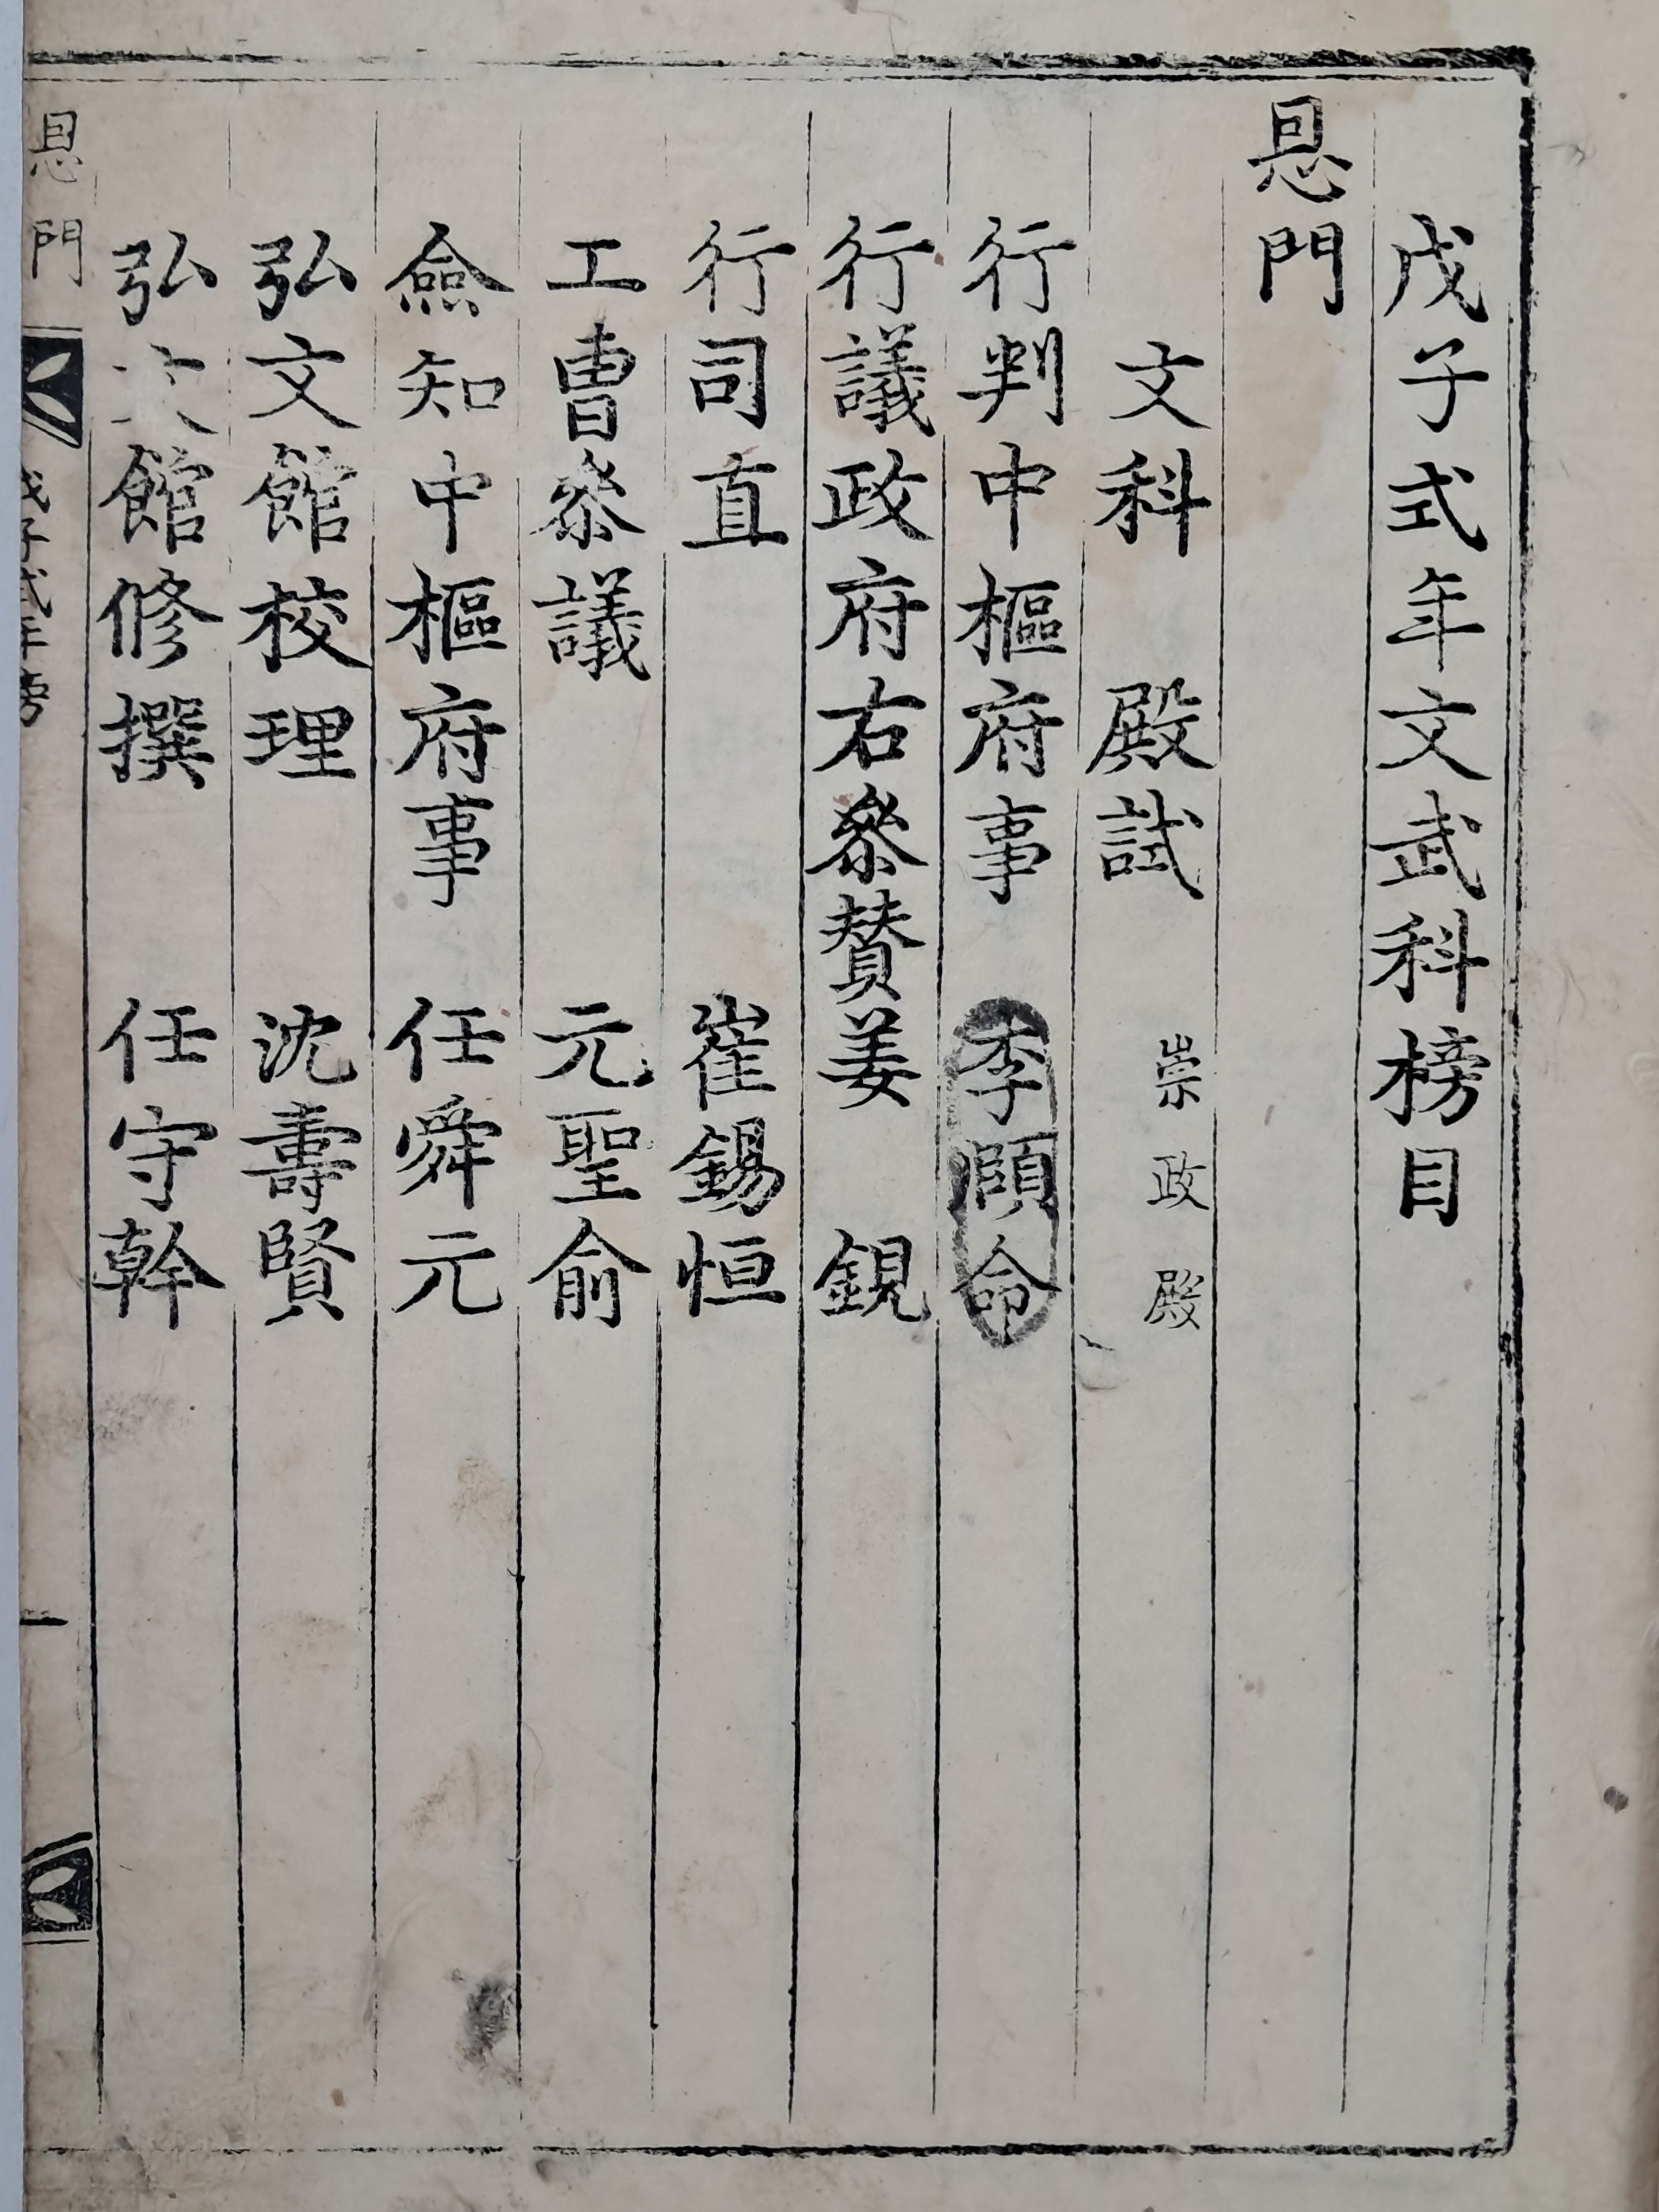 戊子式年文武科榜目
恩門
文科 殿試 崇政殿
行判中樞府事 李頤命
行議政府右叅贊姜 鋧
行司直 崔錫恒
工曹叅議 元聖俞
僉知中樞府事 任舜元
弘文館校理 沈壽賢
弘文館修撰 任守幹
恩門 戊子式年榜 一